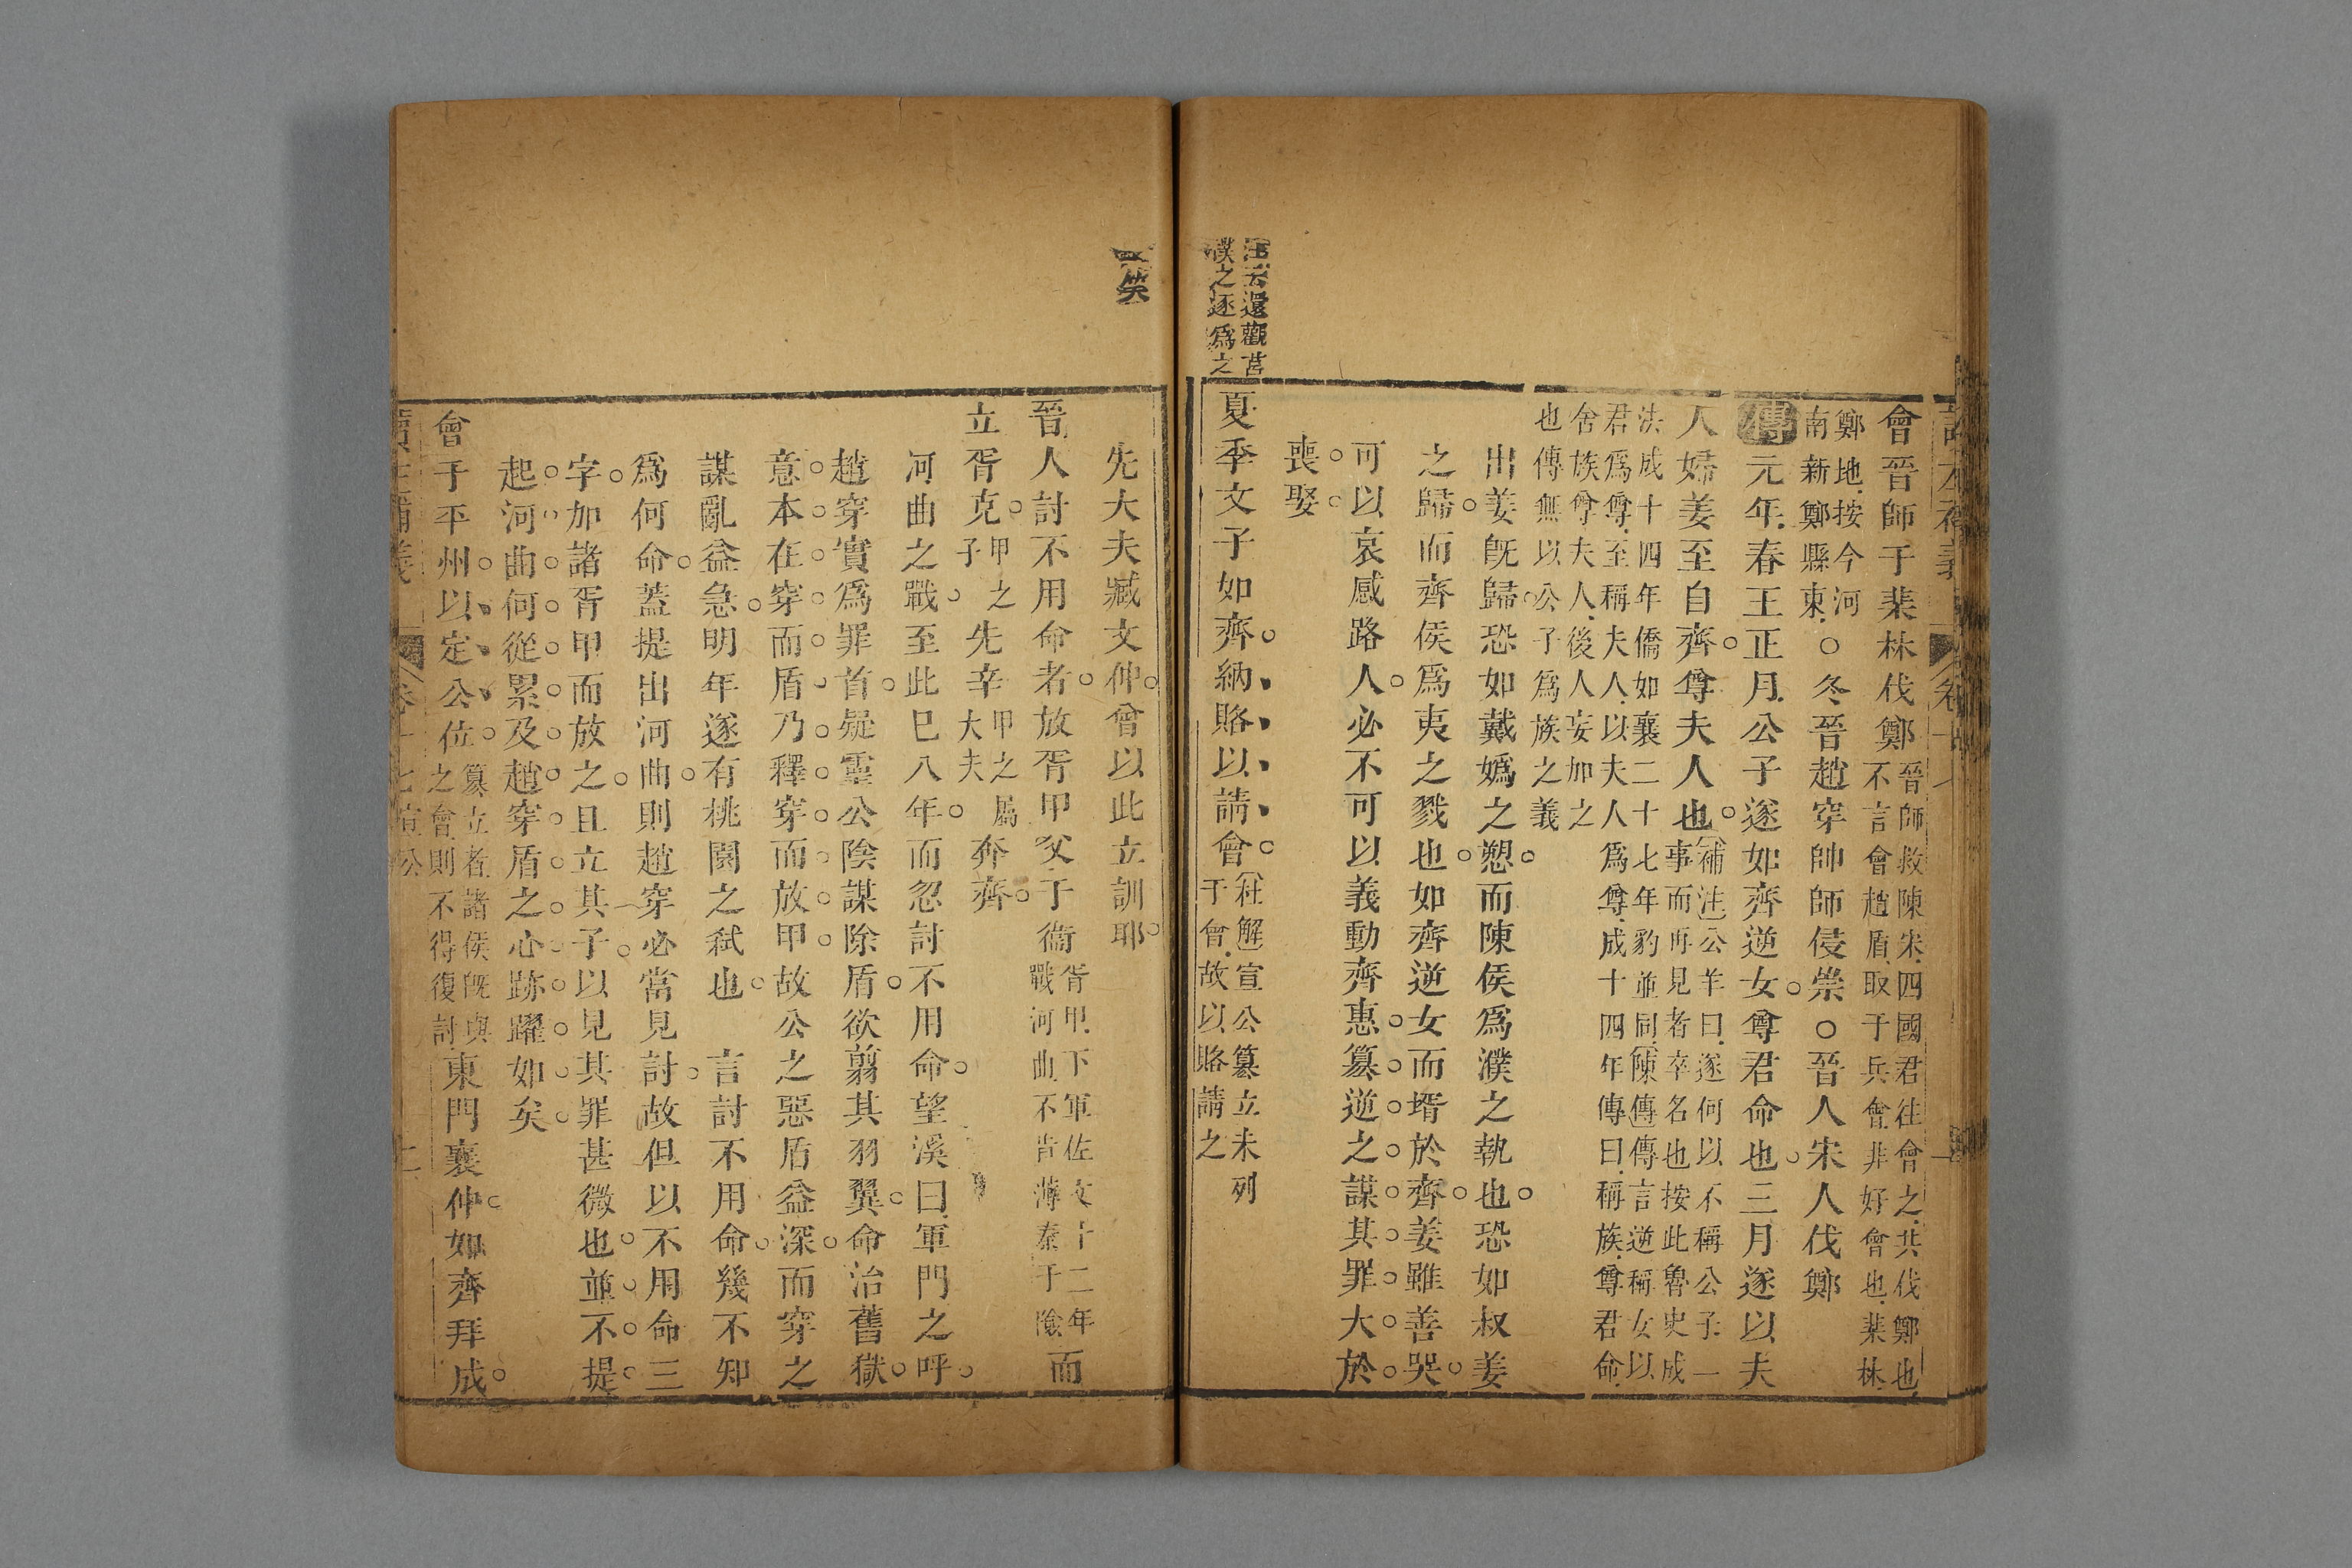 會晉師于棐林伐鄭晉師救陳宋四國君往會之共伐鄭也
不言會趙盾取于兵會非好會也棐林
鄭地按今河
南新鄭縣東○冬晉趙穿帥師侵崇○晉人宋人伐鄭
傳元年春王正月公子遂如齊逆女尊君命也三月遂以夫
人婦姜至自齊尊夫人也補注公羊曰遂何以不稱公子一
事而再見者卒名也按此魯史成
法成十四年僑如襄二十七年豹並同陳傳傳言逆稱女以
君為尊至稱夫人以夫人為尊成十四年傳曰稱族尊君命
舍族尊夫人後人妄加之
也傳無以公子為族之義
出姜旣歸恐如戴嬀之愬而陳侯為濮之執也恐如叔姜
之歸而齊侯為夷之戮也如齊逆女而壻於齊姜雖善哭
可以哀感路人必不可以義動齊惠簒逆之謀其罪大於
喪娶
夏季文子如齊納賂以請會杜解宣公簒立未列
于會故以賂請之
汪云還觀莒
僕之逐為之
一笑
先大夫臧文仲曾以此立訓耶
晉人討不用命者放胥甲父于衞胥甲下軍佐文十二年
戰河曲不肯薄秦于險而
立胥克甲之
子先辛甲之屬
大夫奔齊
河曲之戰至此巳八年而忽討不用命望溪曰軍門之呼
趙穿實為罪首疑靈公陰謀除盾欲翦其羽翼命治舊獄
意本在穿而盾乃釋穿而放甲故公之惡盾益深而穿之
謀亂益急明年遂有桃園之弒也 言討不用命幾不知
為何命蓋提出河曲則趙穿必當見討故但以不用命三
字加諸胥甲而放之且立其子以見其罪甚微也並不提
起河曲何從累及趙穿盾之心跡躍如矣
會于平州以定公位簒立者諸侯旣與
之會則不得復討東門襄仲如齊拜成